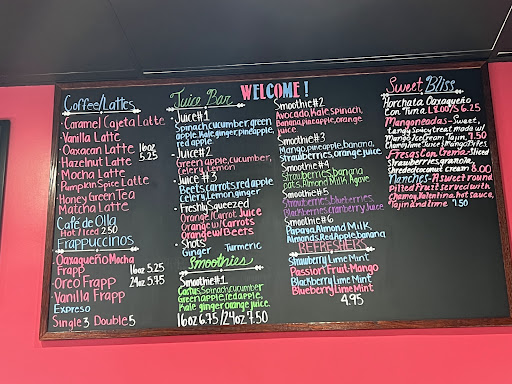 WELCOME!
Coffee/Lattes
Caramel Cajeta Latte
Vanilla Latte
Oaxacan Latte 16oz
Hazelnut Latte 5.25
Mocha Latte
Pumpkin Spice Latte
Honey Green Tea
Matcha Latte
Café de Olla
Hot/Iced 2.50
Frappuccinos
Oaxaqueño Mocha
Frapp 16oz 5.25
Oreo Frapp 24oz 5.75
Vanilla Frapp
Expreso
Single 3 Double 5
Juice Bar
Juice#1
Spinach, cucumber, green
apple, Kale, ginger, pineapple,
red apple.
Juice#2
Green apple, cucumber,
Celery, Lemon
Juice #3
Beets, Carrots, red apple
Celery, Lemon, ginger
Freshly Squeezed
Orange/Carrot Juice
Orange w/ Carrots
Orange w/ Beets
Shots
Ginger Turmeric
Smoothies
Smoothie#1
Cactus, Spinach, cucumber
Green apple, red apple,
Kale ginger orange juice.
16oz 6.75/24oz 7.50
Smoothie#2
Avocado, Kale, spinach,
Banana, pineapple, orange
juice.
Smoothie#3
Mango, pineapple, banana,
Strawberries, orange juice.
Smoothie#4
Strawberries, banana
oats, Almond Milk, Agave
Smoothie#5
Strawberries, blueberries,
Blackberries, cranberry Juice
Smoothie #6
Papaya, Almond Milk,
Almonds, Red Apple, banana
REFRESHERS
Strawberry Lime Mint
Passion Fruit-Mango
Blackberry Lime Mint
Blueberry Lime Mint
4.95
Sweet Bliss
Horchata Oaxaqueño
Con Tuna L8.00/S 6.25
Mangoneadas - Sweet,
tangy Spicy treat made w/
Mango Ice Cream Tajin, 7.50
Chamoy, Lime Juice, Mango/Bites.
Fresas Con Crema - Sliced
Strawberries, granola,
Shredded coconut Cream 8.00
- A sweet round
Pitted Fruit served with
Chamoy, Valentina, hot sauce,
Tajin and lime 7.50